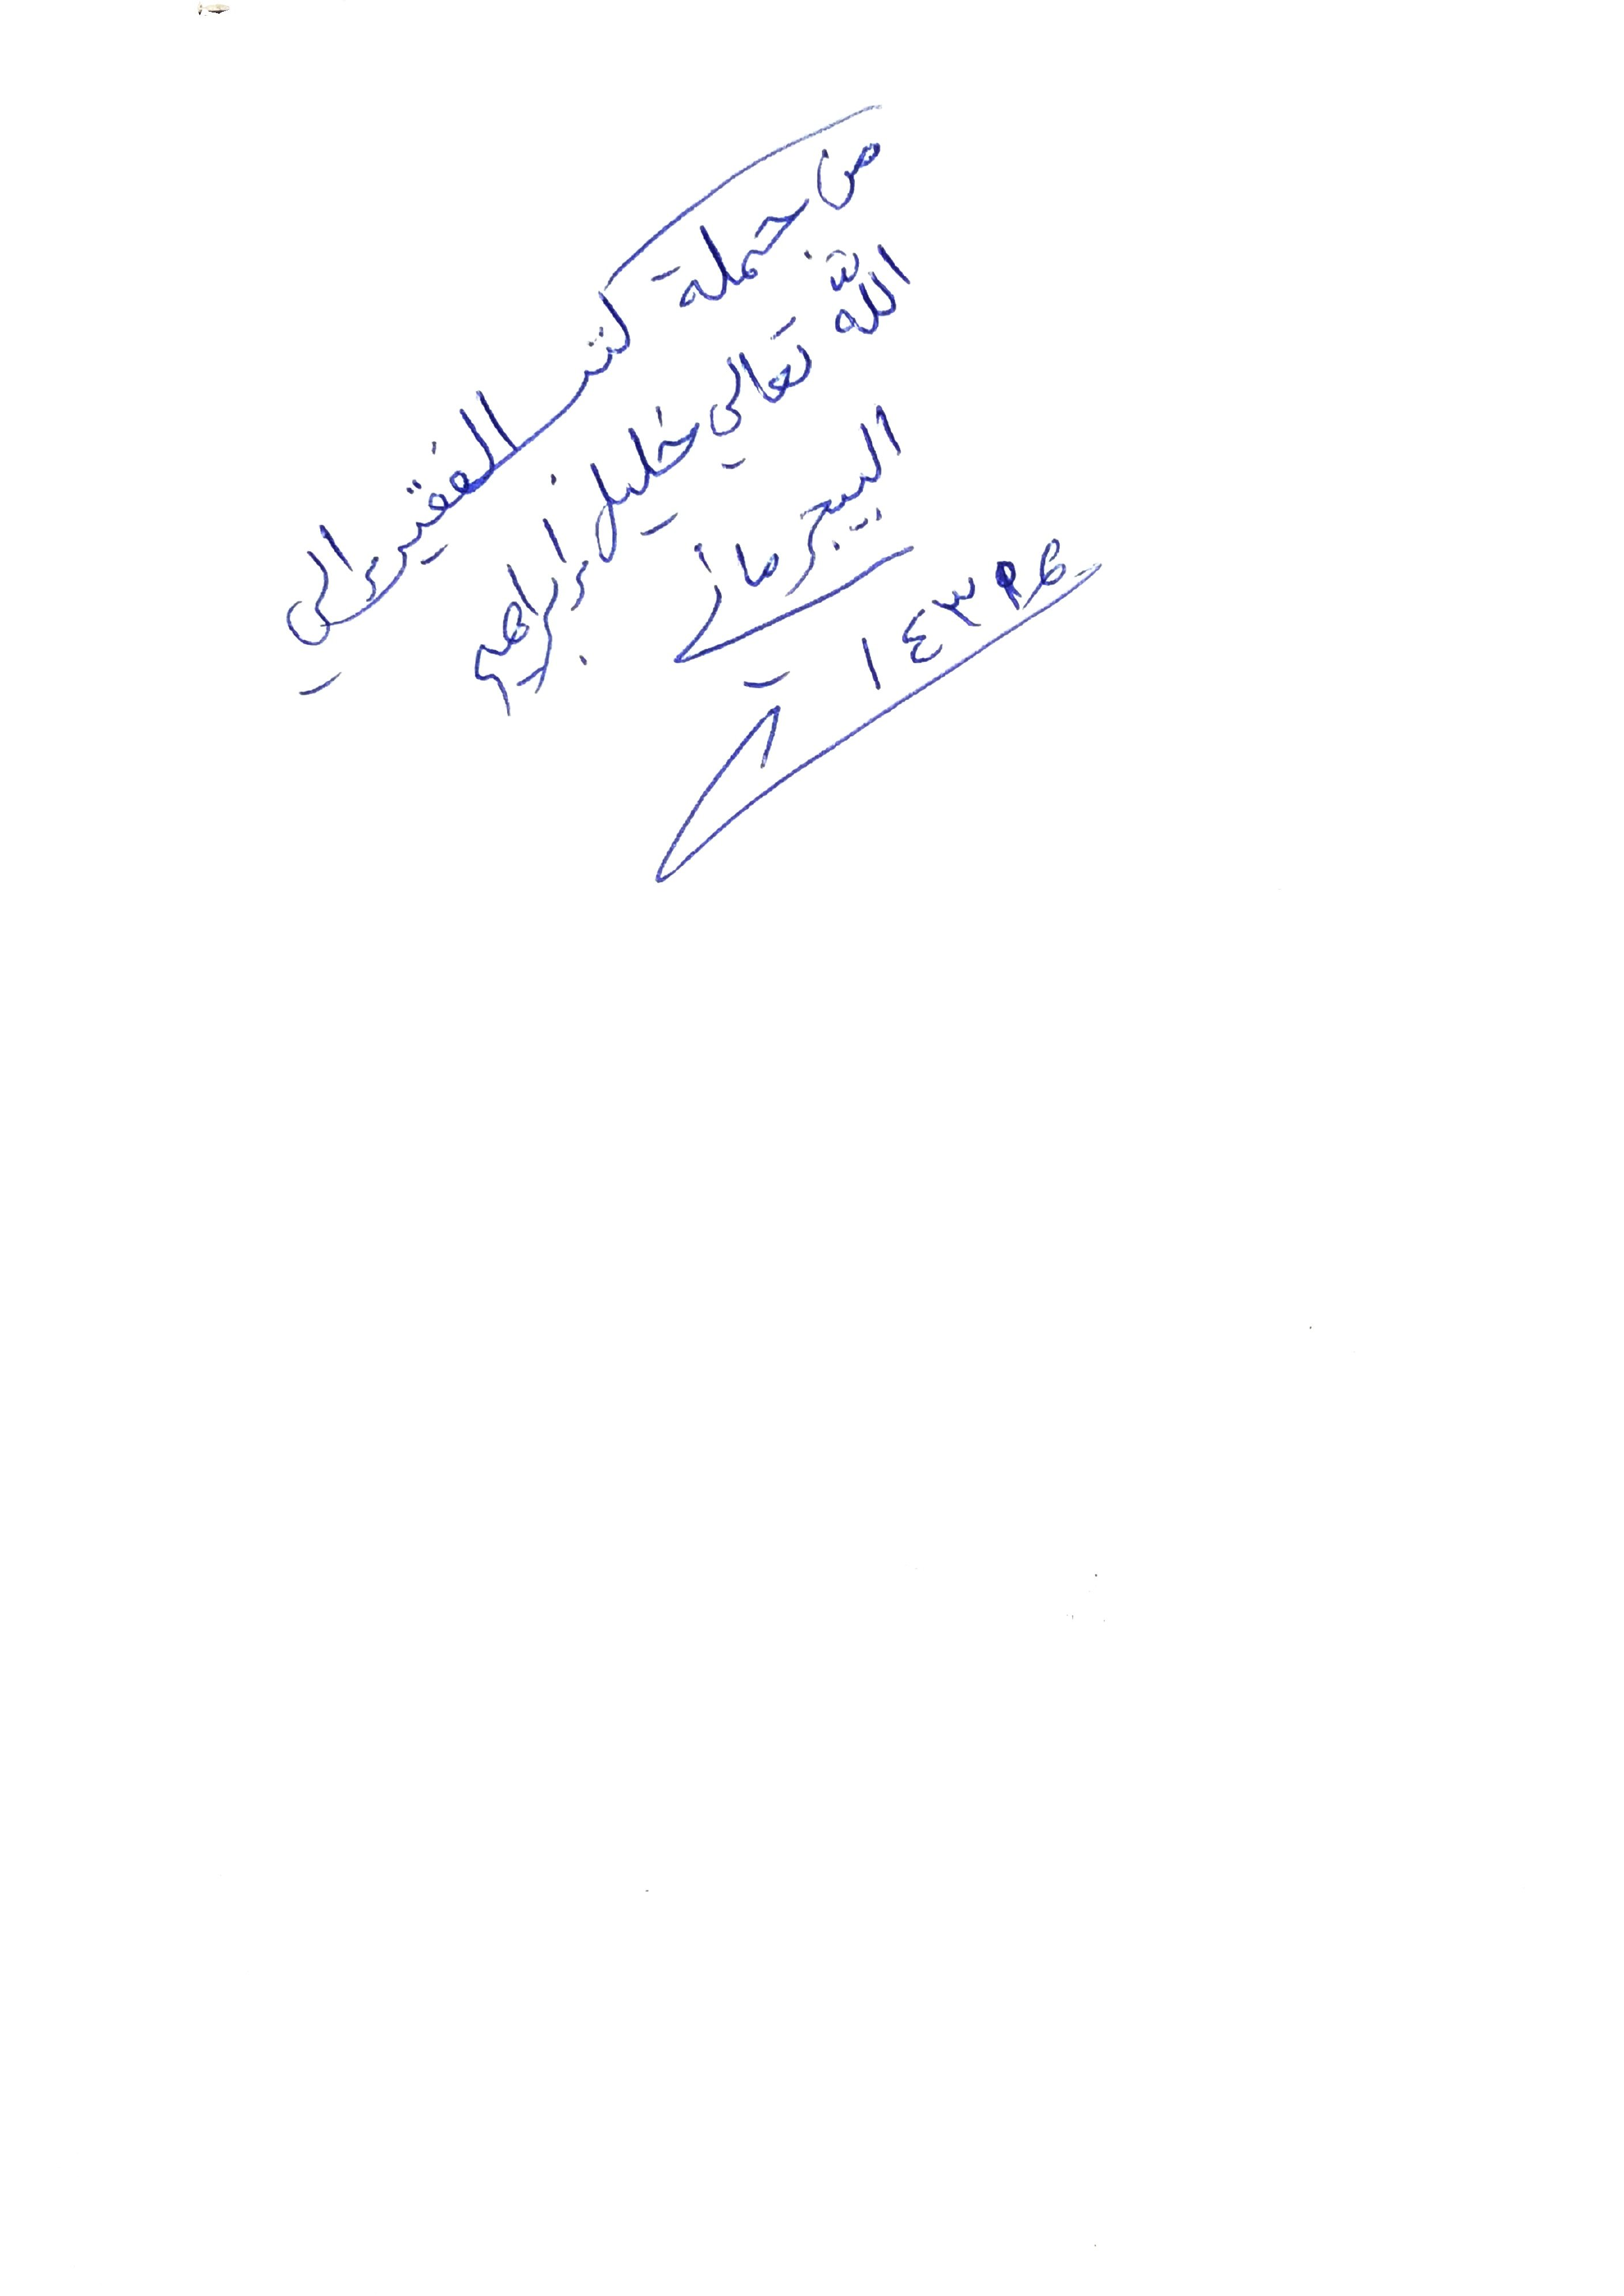 من جملة كتب الفقير الى
الله تعالى خليل ابراهيم
البيجرماني
١٤٣٩ھ